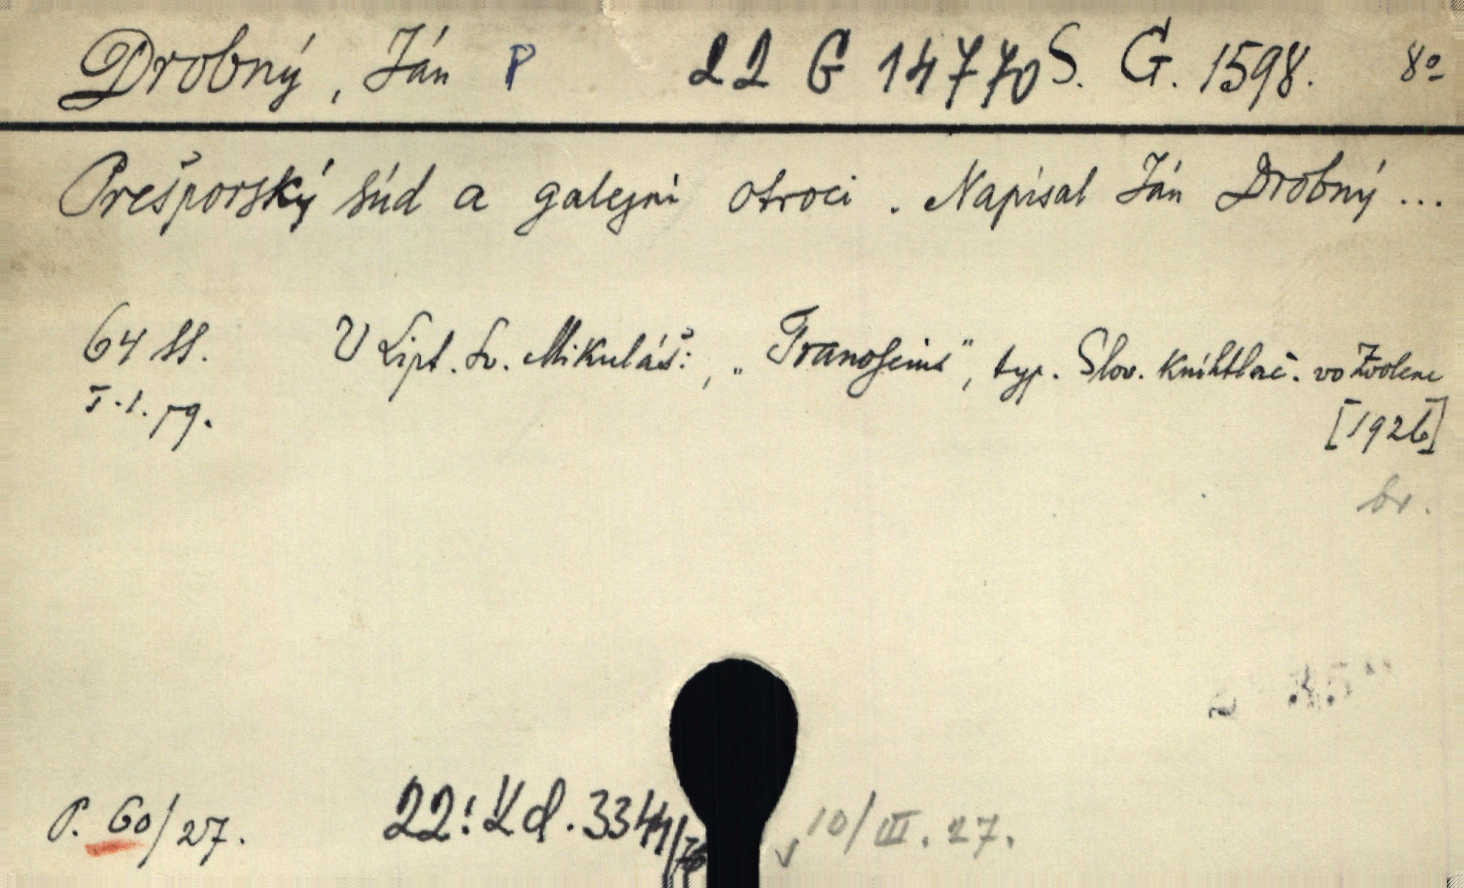 Drobný, Ján P 22 G 14770 S. G. 1598. 8º
Prešporský súd a galejní otroci. Napísal Ján Drobný ...
64 ss. V Lipt. Sv. Mikuláš:, „Tranoscius", typ. Slov. kníhtlač. vo Zvolene
I.1.79. [1926]
br.
P. 60/27. 22: Kd. 3344/76 10/III. 27.